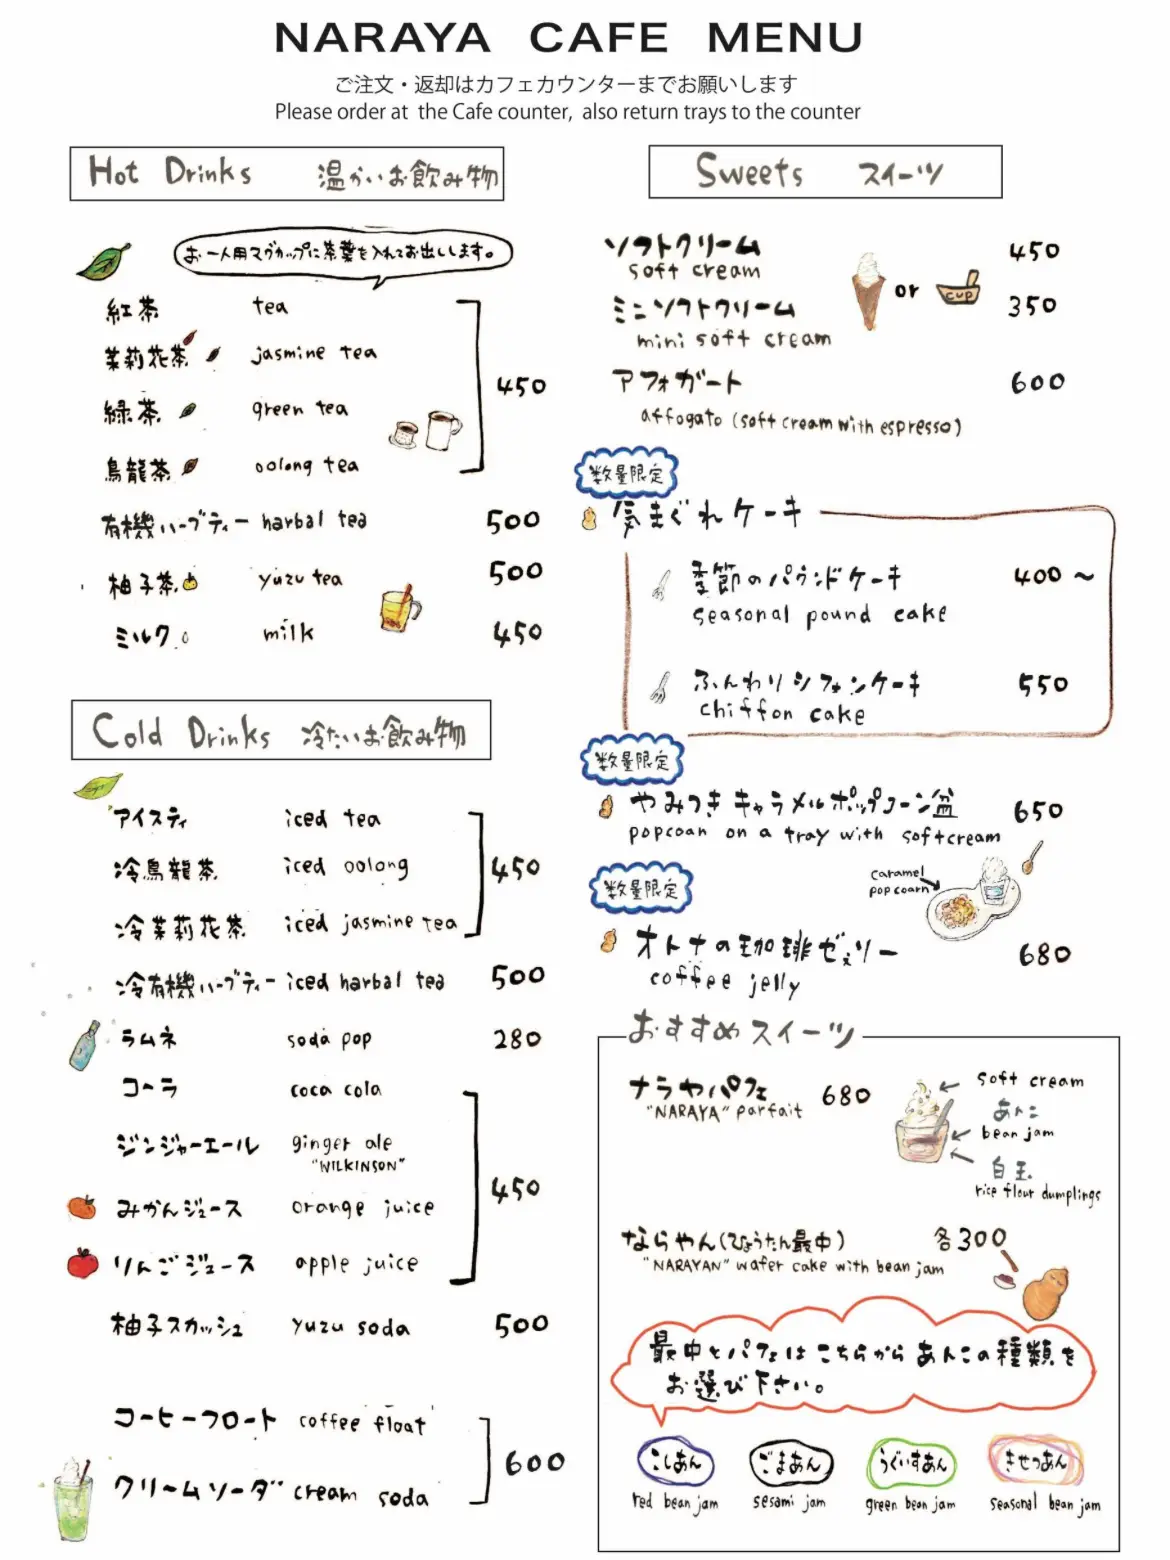 NARAYA CAFE MENU
ご注文・返却はカフェカウンターまでお願いします
Please order at the Cafe counter, also return trays to the counter
Hot Drinks 温かいお飲み物
お一人用マグカップに茶葉を入れてお出しします。
紅茶 tea
茉莉花茶 jasmine tea
450
緑茶 green tea
烏龍茶 oolong tea
有機ハーブティー harbal tea 500
柚子茶 yuzu tea 500
ミルク milk 450
Cold Drinks 冷たいお飲み物
アイスティ iced tea
冷烏龍茶 iced oolong 450
冷茉莉花茶 iced jasmine tea
冷有機ハーブティー iced harbal tea 500
ラムネ soda pop 280
コーラ coca cola
ジンジャーエール ginger ale
"WILKINSON"
450
みかんジュース orange juice
りんごジュース apple juice
柚子スカッシュ yuzu soda 500
コーヒーフロート coffee float
600
クリームソーダ cream soda
Sweets スイーツ
ソフトクリーム 450
soft cream
or
cup
ミニソフトクリーム 350
mini soft cream
アフォガート 600
affogato (soft cream with espresso)
数量限定
気まぐれケーキ
季節のパウンドケーキ 400～
seasonal pound cake
ふんわりシフォンケーキ 550
chiffon cake
数量限定
やみつきキャラメルポップコーン盆 650
popcoan on a tray with softcream
caramel
popcoarn
数量限定
オトナの珈琲ゼェリー 680
coffee jelly
おすすめスイーツ
ナラヤパフェ 680
"NARAYA" parfait
soft cream
あんこ
bean jam
白玉
rice flour dumplings
ならやん(ひょうたん最中) 各300
"NARAYAN" wafer cake with bean jam
最中とパフェはこちらからあんこの種類を
お選び下さい。
こしあん ごまあん うぐいすあん きせつあん
red bean jam sesami jam green bean jam seasonal bean jam